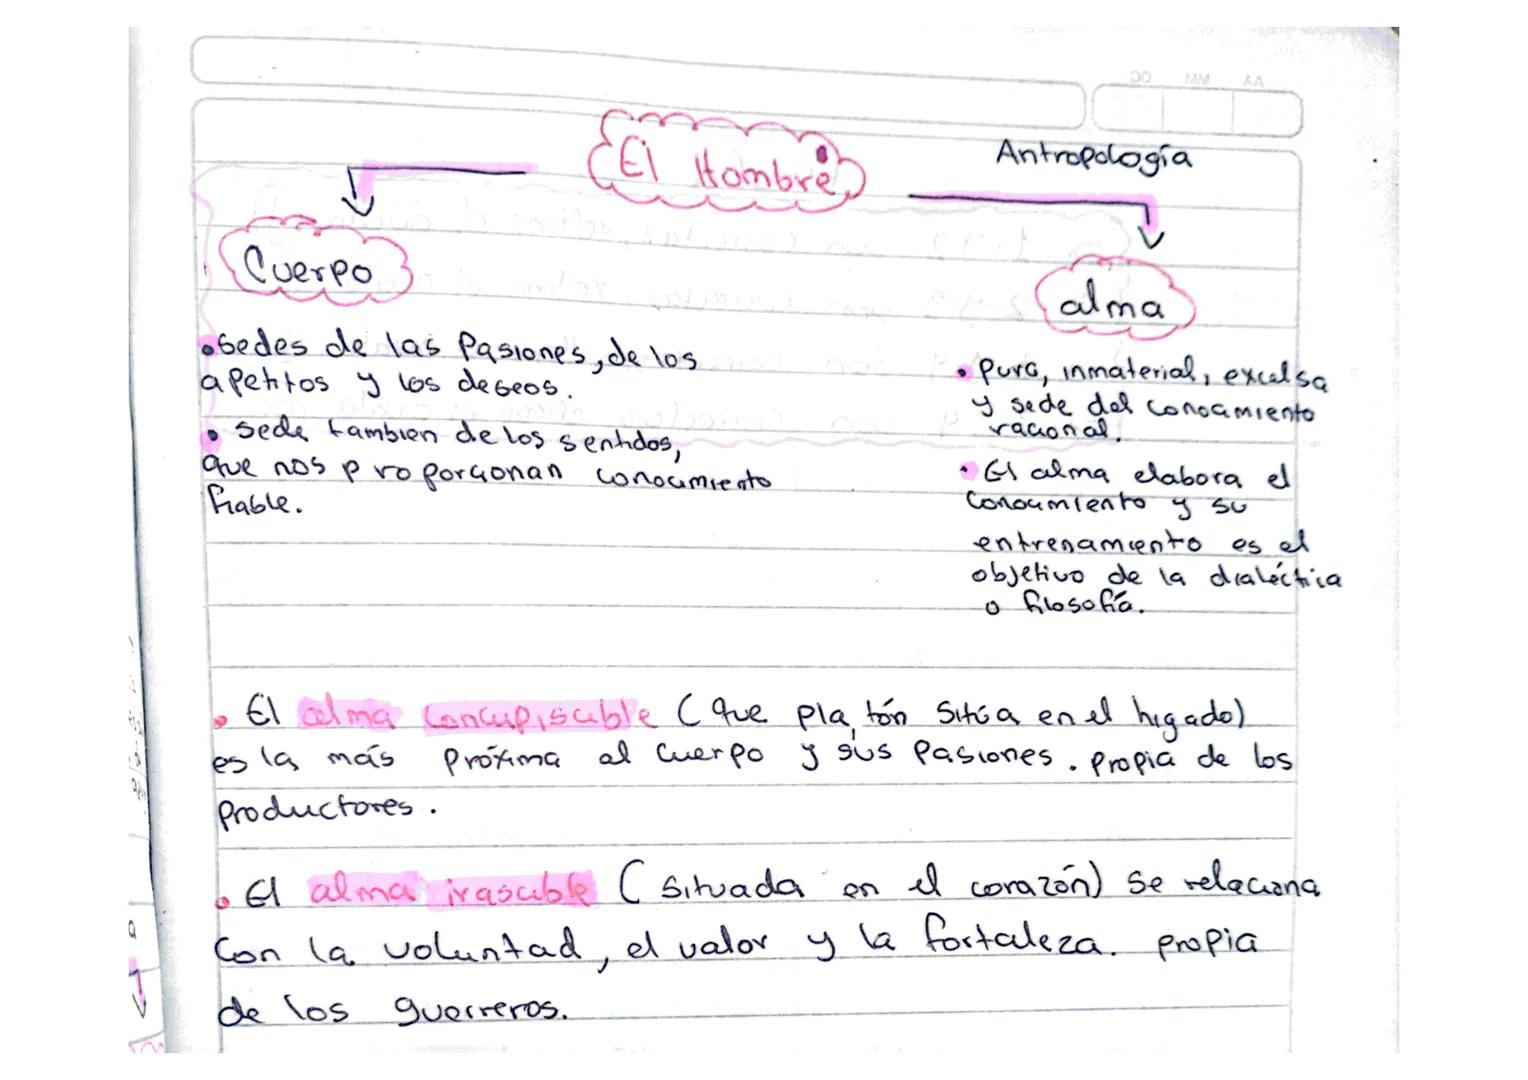 El Hombre
Antropología
Cuerpo
alma
• sedes de las Pasiones, de los
apetitos y los deseos.
• sede tambien de los sentidos,
que nos proporcionan conocimiento
fiable.
• pura, inmaterial, excelsa
y sede del conocimiento
racional.
• El alma elabora el
conocimiento y su
entrenamiento es el
objetivo de la dialéctica
o filosofía.
• El alma concupiscible (que platón sitúa en el higado)
es la más próxima al cuerpo y sus Pasiones. propia de los
productores.
• El alma irascible (situada en el corazón) se relaciona
con la voluntad, el valor y la fortaleza. propia
de los guerreros.